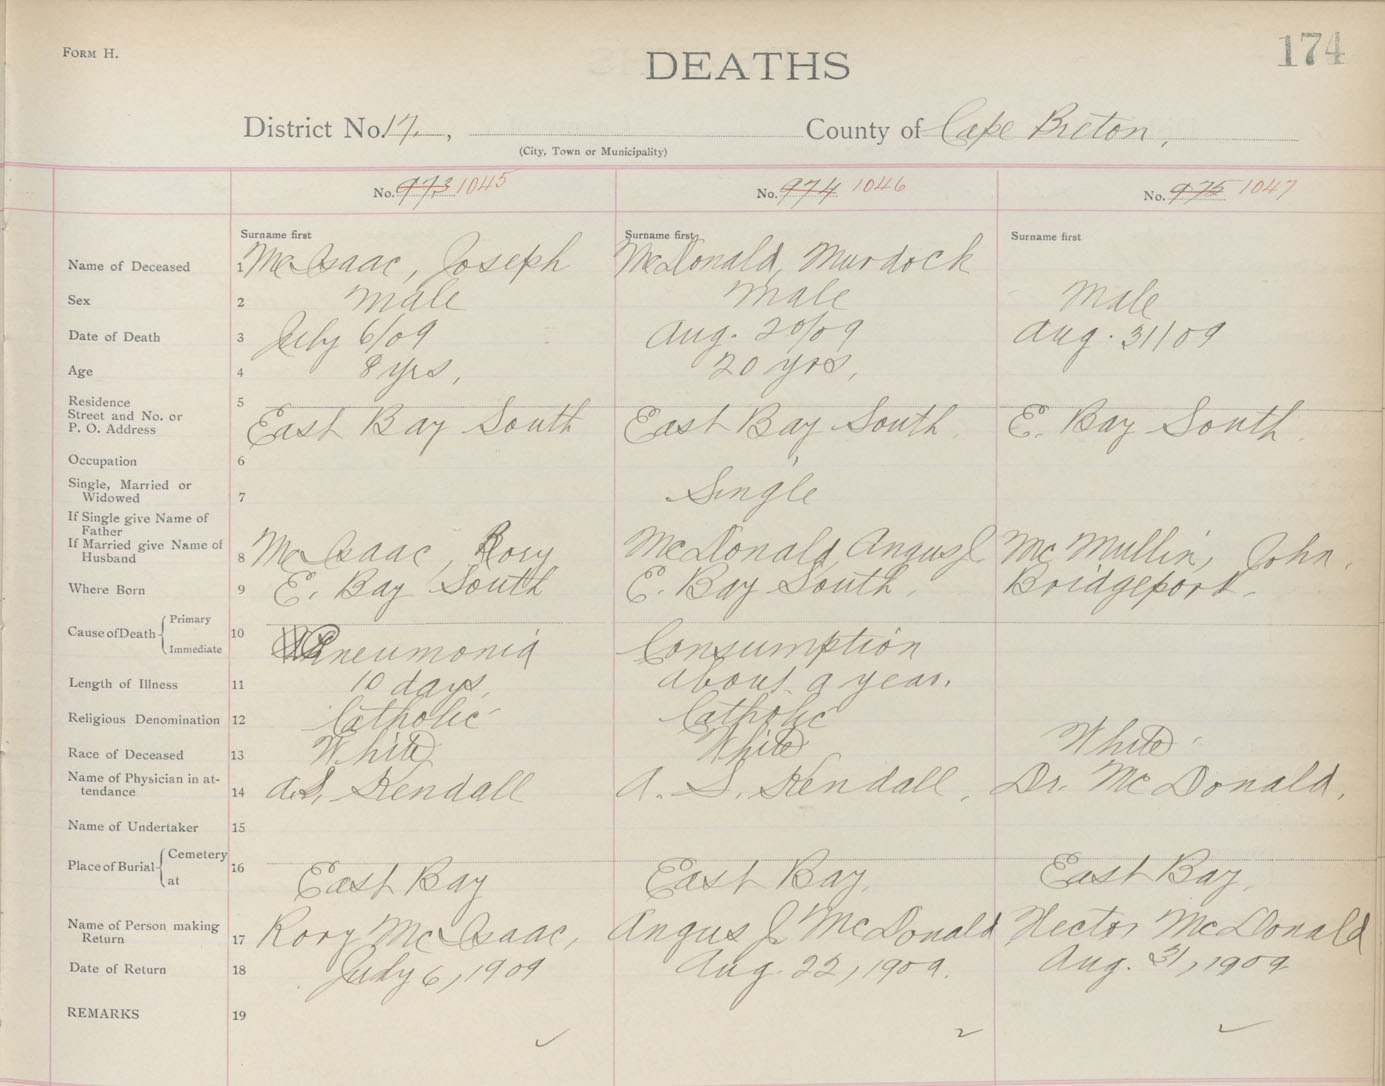 FORM H.
174
DEATHS
District No. 17, County of Cape Breton,
(City, Town or Municipality)
No. 973 1045 No. 974 1046 No. 975 1047
Surname first Surname first Surname first
Name of Deceased 1 McIsaac, Joseph McDonald, Murdock
Sex 2 Male Male Male
Date of Death 3 July 6/09 Aug. 20/09 Aug. 31/09
Age 4 8 yrs, 20 yrs,
Residence 5
Street and No. or
P. O. Address East Bay South East Bay South E. Bay South
Occupation 6
Single, Married or
Widowed 7 Single
If Single give Name of
Father
If Married give Name of
Husband 8 McIsaac, Rory McDonald, Angus J. McMullin, John.
Where Born 9 E. Bay South E. Bay South. Bridgeport.
Cause of Death { Primary 10
Immediate Pneumonia Consumption
Length of Illness 11 10 days, about a year.
Religious Denomination 12 Catholic Catholic
Race of Deceased 13 White White White
Name of Physician in at-
tendance 14 A.S. Kendall A. S. Kendall, Dr. McDonald,
Name of Undertaker 15
Place of Burial { Cemetery 16
at East Bay East Bay, East Bay,
Name of Person making
Return 17 Rory McIsaac, Angus J McDonald Hector McDonald
Date of Return 18 July 6, 1909 Aug. 22, 1909. Aug. 31, 1909
REMARKS 19